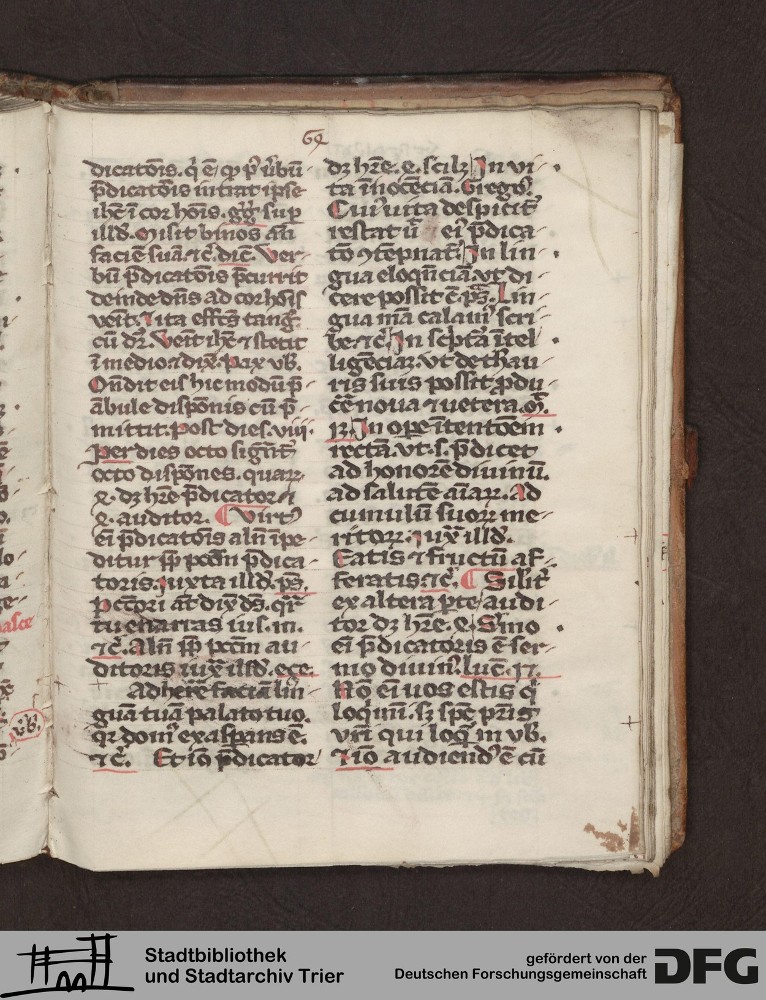 69
dicatōis. q̄ ē ꝙ p̄ ūbū
p̄dicatōis intrat ipse
ih̄c ī cor hōis. gͥg sup
illd. Misit binos añ
faciē suā ⁊c̄. dic̄. Ver-
bū p̄dicatōis p̄currit
deinde dn̄s ad cor hōis
veīt. ⁊ ita effc̄s tanḡ.
cū dr̄. Veīt ih̄c ⁊ stetit
ī medio ⁊ dix̄. Pax vb̄.
Oñdit eis hic modū p̄-
ābule disp̄ōnis cū p̄-
mittit. Post dies .viij.
Per dies octo sigūt̄
octo disp̄ōnes. quaꝝ
.ꝗ. dꝫ hr̄e p̄dicator ⁊
.ꝗ. auditor. Virt⁹
ei p̄dicatōis alñ īpe-
ditur ꝓp̄ pc̄cm p̄dica-
toris. iuxta illd. ps̄.
Pctōri at̄ dix̄ ds̄. qr̄
tu enarras ius. m.
⁊c̄. Alñ ꝓp̄ pc̄cm au-
ditoris iux̄ illd. eze.
Adherē faciā lin-
guā tuā palato tuo.
qr dom⁹ exaspans ē.
⁊c̄. Et iō p̄dicator
dꝫ hr̄e .ꝗ. scilꝫ In vi-
ta īnocēciā. Grego⁹.
Cui⁹ uita despicit̄
restat ū ei⁹ p̄dica-
tō ꝯtēpnat̄. In lin-
gua eloqn̄ciā. vt di-
cere possit ē. ps̄. Lin-
gua mā calam⁹ scri-
be ⁊c̄. In sc̄ptā ītel-
ligēciaꝫ. vt de thau-
ris suis possit ꝓdu-
c̄e noua ⁊ uetera. M̄.
13. In ope ītentōem
rectā. vt .s. p̄dicet
ad honorē diuinū.
ad salutē aīaꝝ. Ad
cumulū suoꝝ me-
ritoꝝ. iux̄ illd.
Eatis ⁊ fructū af-
feratis ⁊c̄. Silit̄
ex altera ꝑte audi-
tor dꝫ hr̄e .ꝗ. Sm̄o
ei p̄dicatoris ē ser-
mo diuin⁹. luc̄. 12.
Nō eī uos estis q̄
loqm̄ī. sꝫ spc̄ pr̄is
vr̄i qui loq̄ī in vb̄.
⁊ iō audiend⁹ ē cū
vb̄.
Stadtbibliothek
und Stadtarchiv Trier
gefördert von der
Deutschen Forschungsgemeinschaft
DFG